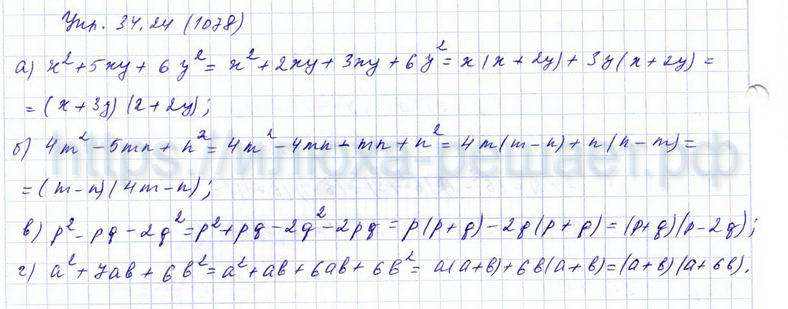 Упр. 34.24 (1078)
а) x² + 5xy + 6y² = x² + 2xy + 3xy + 6y² = x(x + 2y) + 3y(x + 2y) =
= (x + 3y)(2 + 2y);
б) 4m² - 5mn + n² = 4m² - 4mn - mn + n² = 4m(m - n) + n(n - m) =
= (m - n)(4m - n);
в) p² - pq - 2q² = p² + pq - 2q² - 2pq = p(p + q) - 2q(p + q) = (p + q)(p - 2q);
г) a² + 7ab + 6b² = a² + ab + 6ab + 6b² = a(a + b) + 6b(a + b) = (a + b)(a + 6b).